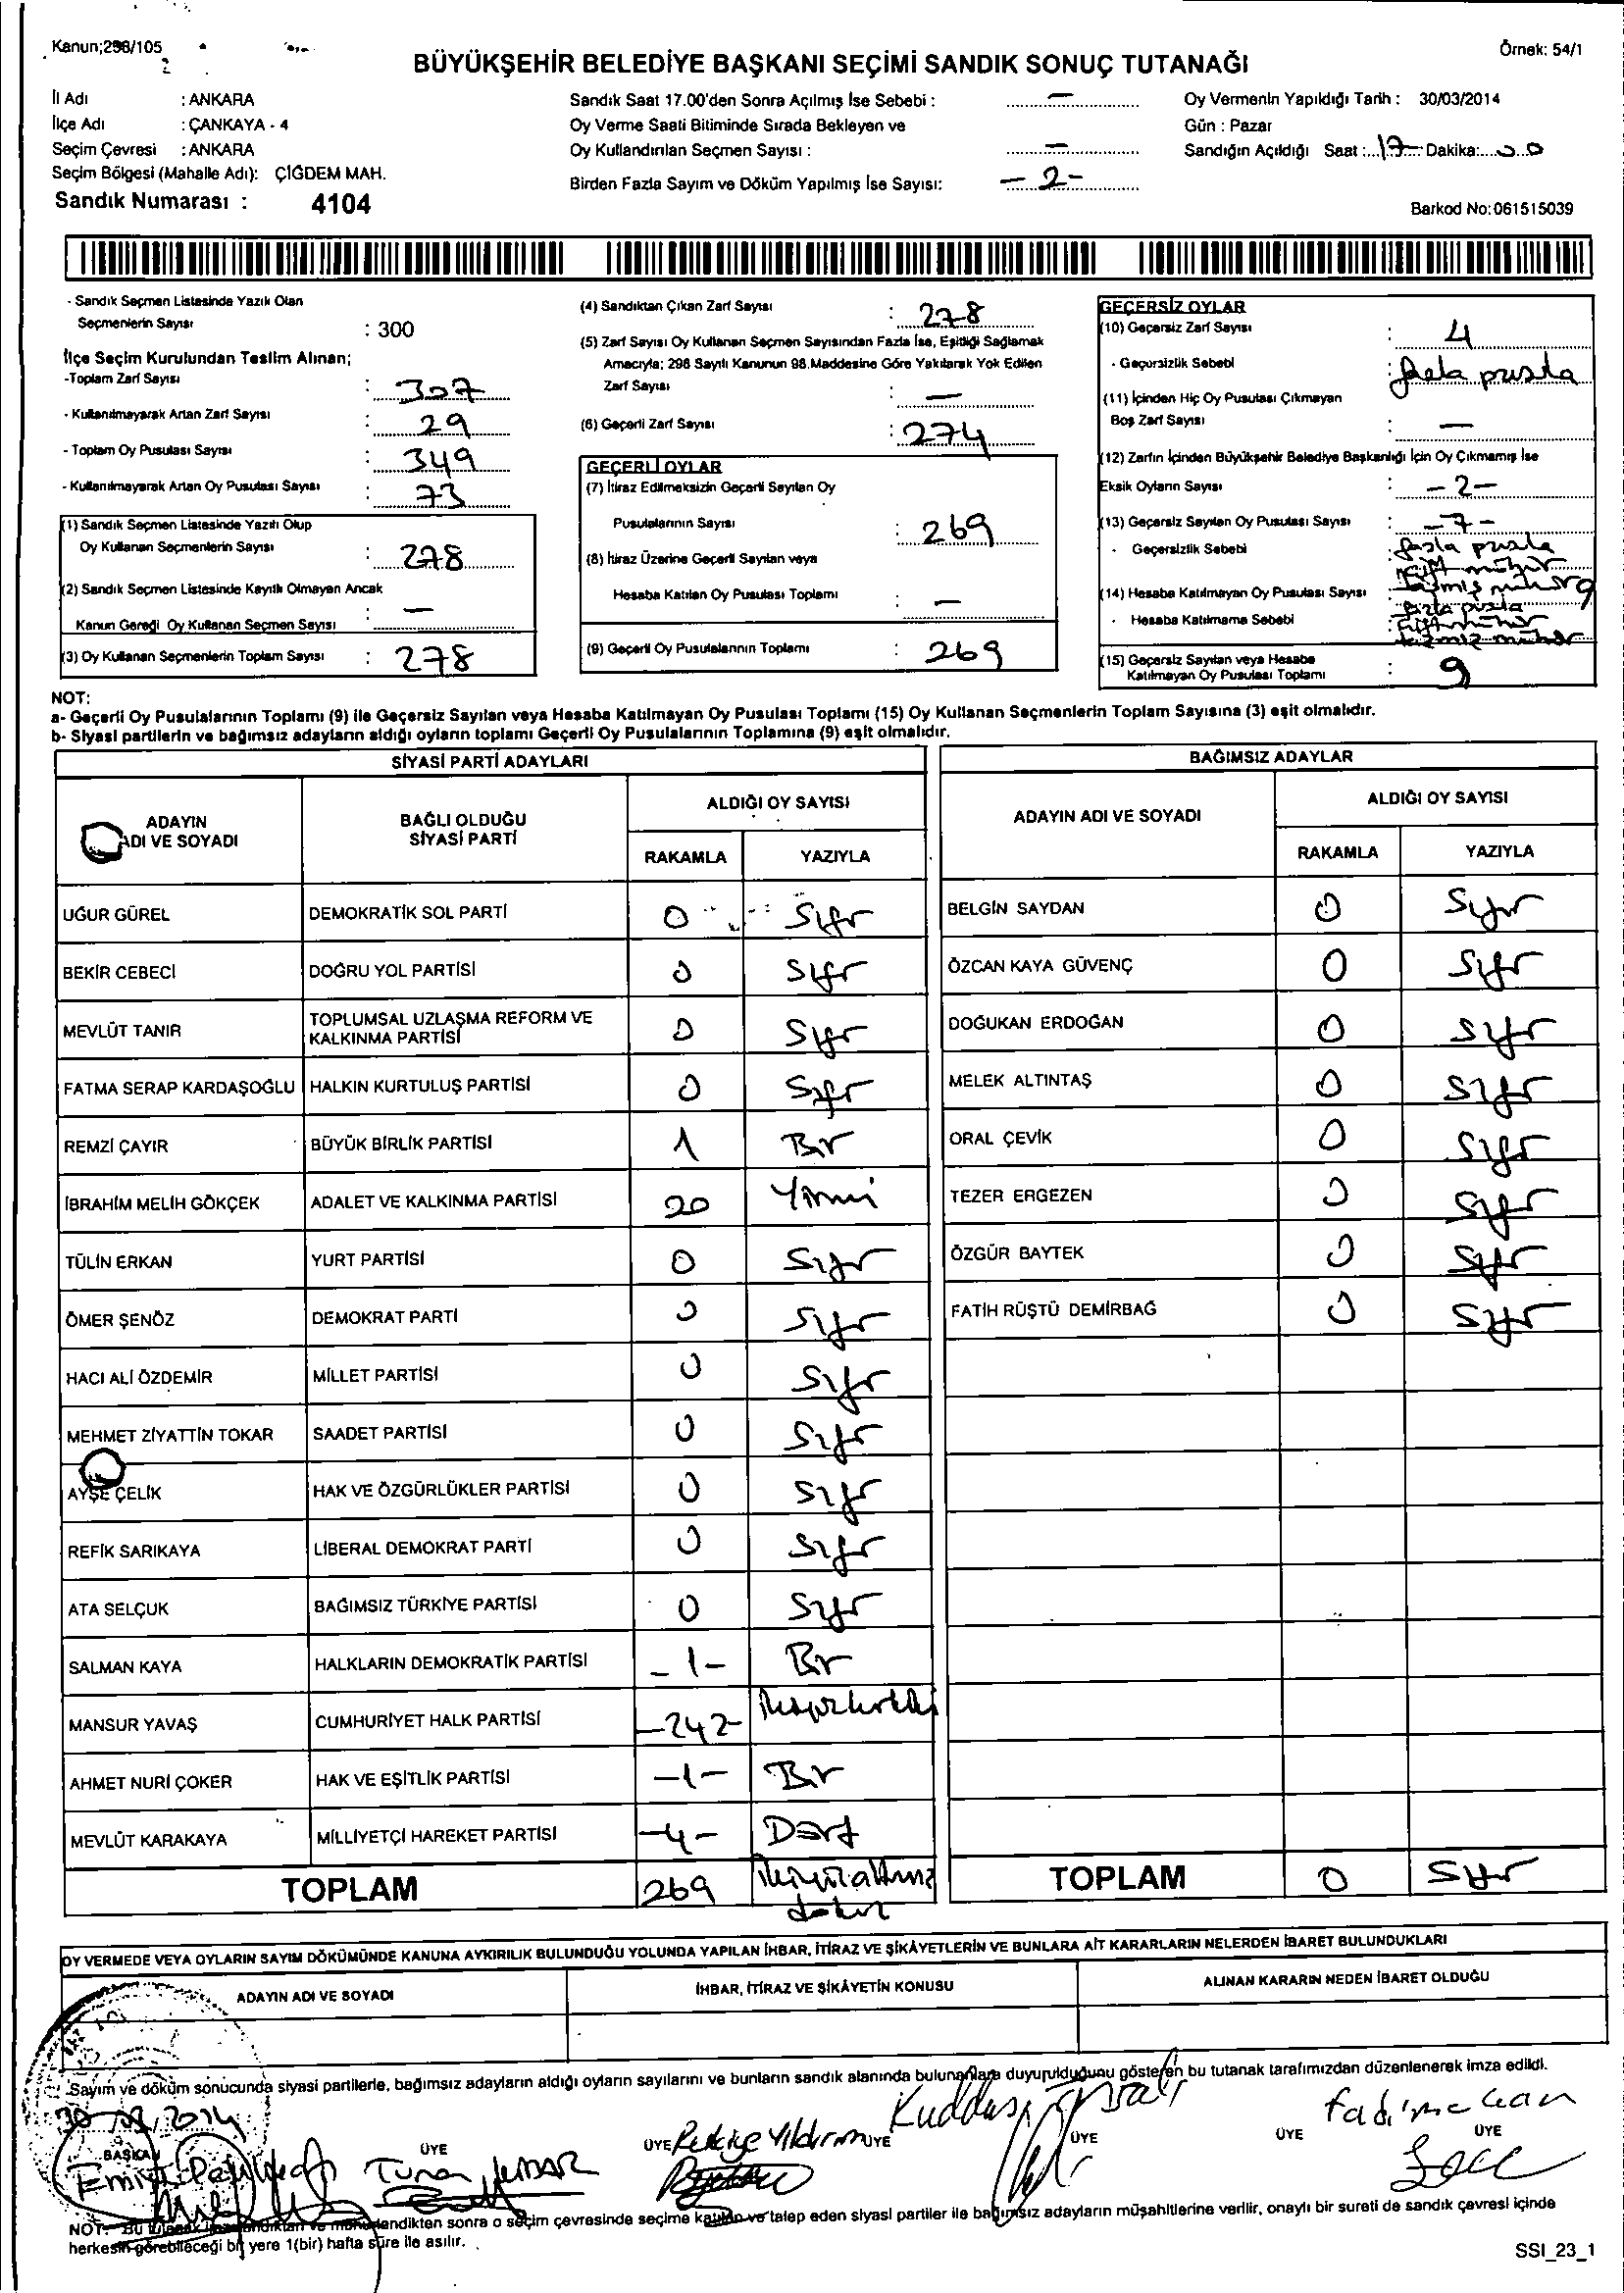 Kanun;298/105
Örnek: 54/1
BÜYÜKŞEHİR BELEDİYE BAŞKANI SEÇİMİ SANDIK SONUÇ TUTANAĞI
İl Adı : ANKARA
İlçe Adı : ÇANKAYA - 4
Seçim Çevresi : ANKARA
Seçim Bölgesi (Mahalle Adı): ÇİĞDEM MAH.
Sandık Numarası : 4104
Sandık Saat 17.00'den Sonra Açılmış İse Sebebi : —
Oy Verme Saati Bitiminde Sırada Bekleyen ve
Oy Kullandırılan Seçmen Sayısı : —
Birden Fazla Sayım ve Döküm Yapılmış İse Sayısı: - 2 -
Oy Vermenin Yapıldığı Tarih : 30/03/2014
Gün : Pazar
Sandığın Açıldığı Saat : 17 Dakika: 00
Barkod No:061515039
- Sandık Seçmen Listesinde Yazılı Olan
Seçmenlerin Sayısı : 300
İlçe Seçim Kurulundan Teslim Alınan;
-Toplam Zarf Sayısı : 307
- Kullanılmayarak Artan Zarf Sayısı : 29
- Toplam Oy Pusulası Sayısı : 349
- Kullanılmayarak Artan Oy Pusulası Sayısı : 73
(1) Sandık Seçmen Listesinde Yazılı Olup
Oy Kullanan Seçmenlerin Sayısı : 278
(2) Sandık Seçmen Listesinde Kayıtlı Olmayan Ancak
Kanun Gereği Oy Kullanan Seçmen Sayısı : —
(3) Oy Kullanan Seçmenlerin Toplam Sayısı : 278
(4) Sandıktan Çıkan Zarf Sayısı : 278
(5) Zarf Sayısı Oy Kullanan Seçmen Sayısından Fazla İse, Eşitliği Sağlamak
Amacıyla; 298 Sayılı Kanunun 98.Maddesine Göre Yakılarak Yok Edilen
Zarf Sayısı : —
(6) Geçerli Zarf Sayısı : 274
GEÇERLİ OYLAR
(7) İtiraz Edilmeksizin Geçerli Sayılan Oy
Pusulalarının Sayısı : 269
(8) İtiraz Üzerine Geçerli Sayılan veya
Hesaba Katılan Oy Pusulası Toplamı : —
(9) Geçerli Oy Pusulalarının Toplamı : 269
GEÇERSİZ OYLAR
(10) Geçersiz Zarf Sayısı : 4
- Geçersizlik Sebebi : pusla
(11) İçinden Hiç Oy Pusulası Çıkmayan
Boş Zarf Sayısı : —
(12) Zarfın İçinden Büyükşehir Belediye Başkanlığı İçin Oy Çıkmamış İse
Eksik Oyların Sayısı : - 2 -
(13) Geçersiz Sayılan Oy Pusulası Sayısı : - 7 -
- Geçersizlik Sebebi : fazla pusla
çift mühür
(14) Hesaba Katılmayan Oy Pusulası Sayısı : 9
- Hesaba Katılmama Sebebi : fazla pusla
(15) Geçersiz Sayılan veya Hesaba
Katılmayan Oy Pusulası Toplamı : 9
NOT:
a- Geçerli Oy Pusulalarının Toplamı (9) ile Geçersiz Sayılan veya Hesaba Katılmayan Oy Pusulası Toplamı (15) Oy Kullanan Seçmenlerin Toplam Sayısına (3) eşit olmalıdır.
b- Siyasi partilerin ve bağımsız adayların aldığı oyların toplamı Geçerli Oy Pusulalarının Toplamına (9) eşit olmalıdır.
SİYASİ PARTİ ADAYLARI
ADAYIN
ADI VE SOYADI
BAĞLI OLDUĞU
SİYASİ PARTİ
ALDIĞI OY SAYISI
RAKAMLA YAZIYLA
UĞUR GÜREL DEMOKRATİK SOL PARTİ 0 Sıfır
BEKİR CEBECİ DOĞRU YOL PARTİSİ 0 Sıfır
MEVLÜT TANIR TOPLUMSAL UZLAŞMA REFORM VE
KALKINMA PARTİSİ 0 Sıfır
FATMA SERAP KARDAŞOĞLU HALKIN KURTULUŞ PARTİSİ 0 Sıfır
REMZİ ÇAYIR BÜYÜK BİRLİK PARTİSİ 1 Bir
İBRAHİM MELİH GÖKÇEK ADALET VE KALKINMA PARTİSİ 20 Yirmi
TÜLİN ERKAN YURT PARTİSİ 0 Sıfır
ÖMER ŞENÖZ DEMOKRAT PARTİ 0 Sıfır
HACI ALİ ÖZDEMİR MİLLET PARTİSİ 0 Sıfır
MEHMET ZİYATTİN TOKAR SAADET PARTİSİ 0 Sıfır
AYŞE ÇELİK HAK VE ÖZGÜRLÜKLER PARTİSİ 0 Sıfır
REFİK SARIKAYA LİBERAL DEMOKRAT PARTİ 0 Sıfır
ATA SELÇUK BAĞIMSIZ TÜRKİYE PARTİSİ 0 Sıfır
SALMAN KAYA HALKLARIN DEMOKRATİK PARTİSİ - 1 - Bir
MANSUR YAVAŞ CUMHURİYET HALK PARTİSİ - 242 - İkiyüzkırkiki
AHMET NURİ ÇOKER HAK VE EŞİTLİK PARTİSİ - 1 - Bir
MEVLÜT KARAKAYA MİLLİYETÇİ HAREKET PARTİSİ - 4 - Dört
TOPLAM 269 İkiyüzaltmış
dokuz
BAĞIMSIZ ADAYLAR
ADAYIN ADI VE SOYADI
ALDIĞI OY SAYISI
RAKAMLA YAZIYLA
BELGİN SAYDAN 0 Sıfır
ÖZCAN KAYA GÜVENÇ 0 Sıfır
DOĞUKAN ERDOĞAN 0 Sıfır
MELEK ALTINTAŞ 0 Sıfır
ORAL ÇEVİK 0 Sıfır
TEZER ERGEZEN 0 Sıfır
ÖZGÜR BAYTEK 0 Sıfır
FATİH RÜŞTÜ DEMİRBAĞ 0 Sıfır
TOPLAM 0 Sıfır
OY VERMEDE VEYA OYLARIN SAYIM DÖKÜMÜNDE KANUNA AYKIRILIK BULUNDUĞU YOLUNDA YAPILAN İHBAR, İTİRAZ VE ŞİKÂYETLERİN VE BUNLARA AİT KARARLARIN NELERDEN İBARET BULUNDUKLARI
ADAYIN ADI VE SOYADI
İHBAR, İTİRAZ VE ŞİKÂYETİN KONUSU
ALINAN KARARIN NEDEN İBARET OLDUĞU
Sayım ve döküm sonucunda siyasi partilerle, bağımsız adayların aldığı oyların sayılarını ve bunların sandık alanında bulunanlara duyurulduğunu gösteren bu tutanak tarafımızdan düzenlenerek imza edildi.
BAŞKAN ÜYE ÜYE ÜYE ÜYE ÜYE ÜYE
Yıldırım
NOT: Bu tutanak sonra o seçim çevresinde seçime katılan ve talep eden siyasi partiler ile bağımsız adayların müşahitlerine verilir, onaylı bir sureti de sandık çevresi içinde
herkesin görebileceği bir yere 1(bir) hafta süre ile asılır.
SSI_23_1